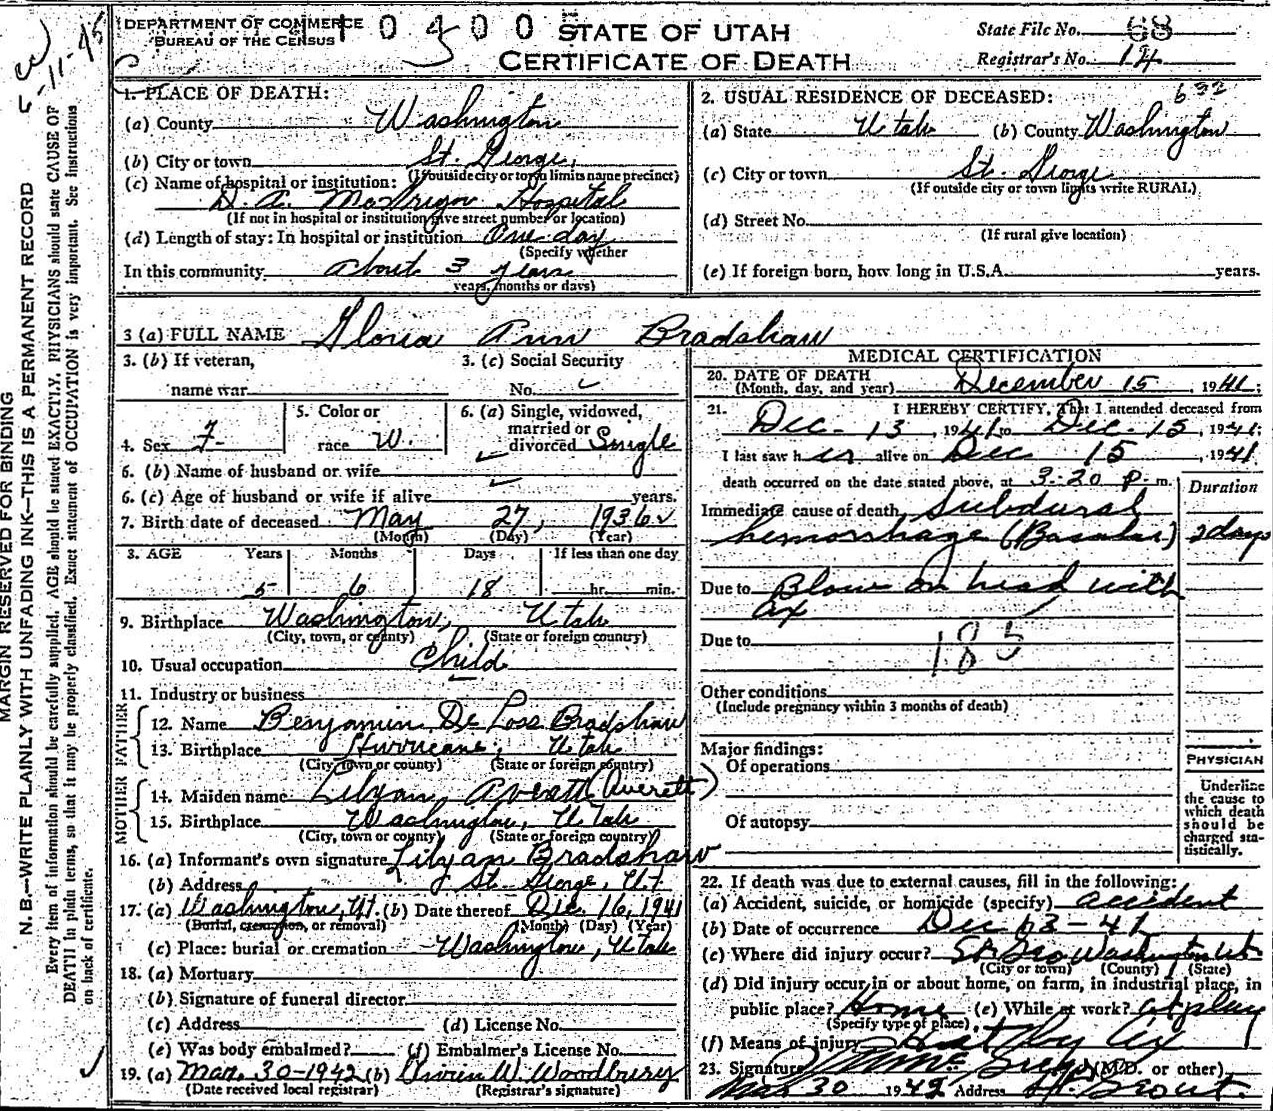 DEPARTMENT OF COMMERCE
BUREAU OF THE CENSUS
STATE OF UTAH
CERTIFICATE OF DEATH
State File No. 68
Registrar's No. 14
MARGIN RESERVED FOR BINDING
N. B.—WRITE PLAINLY WITH UNFADING INK—THIS IS A PERMANENT RECORD
Every item of information should be carefully supplied. AGE should be stated EXACTLY. PHYSICIANS should state CAUSE OF
DEATH in plain terms, so that it may be properly classified. Exact statement of OCCUPATION is very important. See instructions
on back of certificate.
1. PLACE OF DEATH:
(a) County Washington
(b) City or town St. George,
(If outside city or town limits name precinct)
(c) Name of hospital or institution:
D. A. McGregor Hospital
(If not in hospital or institution give street number or location)
(d) Length of stay: In hospital or institution One day
(Specify whether
In this community about 3 years
years, months or days)
2. USUAL RESIDENCE OF DECEASED: 632
(a) State Utah (b) County Washington
(c) City or town St. George
(If outside city or town limits write RURAL)
(d) Street No.
(If rural give location)
(e) If foreign born, how long in U.S.A. years.
3 (a) FULL NAME Gloria Ann Bradshaw
3. (b) If veteran,
name war
3. (c) Social Security
No.
4. Sex F
5. Color or
race W.
6. (a) Single, widowed,
married or
divorced Single
6. (b) Name of husband or wife
6. (c) Age of husband or wife if alive years.
7. Birth date of deceased May 27, 1936
(Month) (Day) (Year)
8. AGE Years Months Days If less than one day
5 6 18 hr. min.
9. Birthplace Washington, Utah
(City, town, or county) (State or foreign country)
10. Usual occupation Child
11. Industry or business
FATHER
12. Name Benjamin De Loss Bradshaw
13. Birthplace Hurricane, Utah
(City, town or county) (State or foreign country)
MOTHER
14. Maiden name Lilyan Averett (Averett)
15. Birthplace Washington, Utah
(City, town or county) (State or foreign country)
16. (a) Informant's own signature Lilyan Bradshaw
(b) Address St. George, Ut
17. (a) Washington, Ut. (b) Date thereof Dec. 16, 1941
(Burial, cremation, or removal) (Month) (Day) (Year)
(c) Place: burial or cremation Washington, Utah
18. (a) Mortuary
(b) Signature of funeral director
(c) Address (d) License No.
(e) Was body embalmed? (f) Embalmer's License No.
19. (a) Mar. 30-1942 (b) Vivien W. Woodbury
(Date received local registrar) (Registrar's signature)
MEDICAL CERTIFICATION
20. DATE OF DEATH
(Month, day, and year) December 15, 1941;
21. I HEREBY CERTIFY, That I attended deceased from
Dec. 13, 1941 to Dec. 15, 1941;
I last saw her alive on Dec 15, 1941
death occurred on the date stated above, at 3:20 P. m.
Duration
Immediate cause of death Subdural
hemorrhage (Basalar) 2 days
Due to Blow on head with
ax
Due to
185
Other conditions
(Include pregnancy within 3 months of death)
Major findings:
Of operations
Of autopsy
PHYSICIAN
Underline
the cause to
which death
should be
charged sta-
tistically.
22. If death was due to external causes, fill in the following:
(a) Accident, suicide, or homicide (specify) accident
(b) Date of occurrence Dec 13-41
(c) Where did injury occur? St Geo Washington Ut
(City or town) (County) (State)
(d) Did injury occur in or about home, on farm, in industrial place, in
public place? Home (e) While at work? at play
(Specify type of place)
(f) Means of injury Hit by ax
23. Signature (M.D. or other)
Mar 30 1942 Address